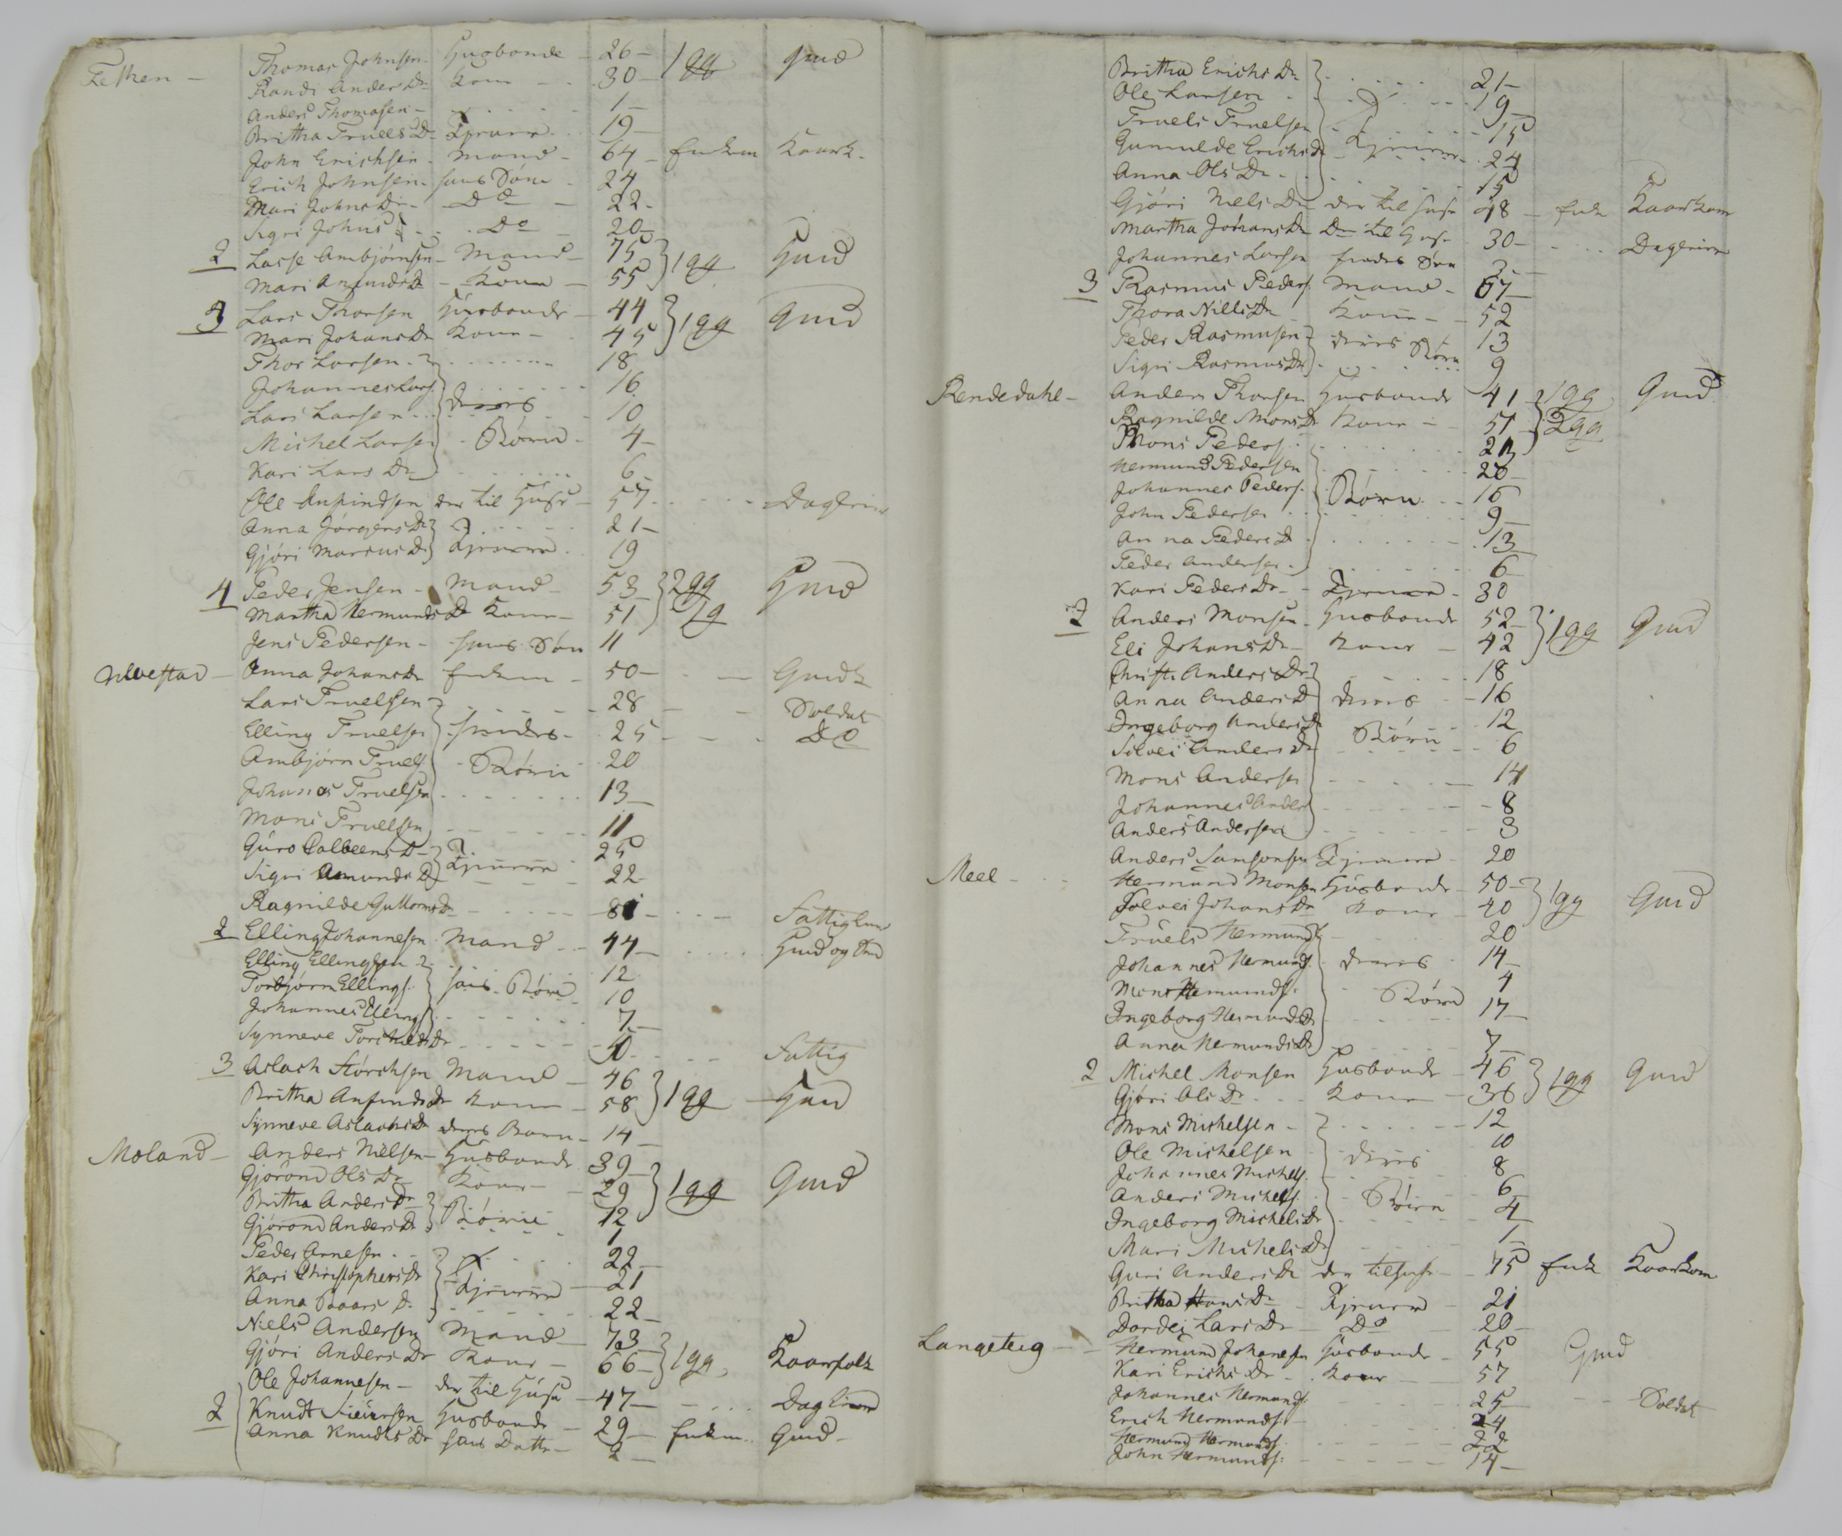 Fethen - Thomas Johnsen Husbonde - 26 - 1 gg Gmd
Randi Anders Dr Kone - - 30 -
Anders Thomasen - 1 -
Britha Truels Dr Tjenere 19 -
John Erichsen - Mand - 64 - Enkem Kaark.
Erich Johnsen - hans Søn - 24
Mari Johns Dr - Do - 22 -
Sigri Johns Do 20 -
2 Lasse Ambjørnsen - Mand - 75 1 gg Gmd
Mari Amunds Dr - Kone - 55
3 Lars Thorsen Husbonde - 44 1 gg Gmd
Mari Johans Dr Kone - 45
Thor Larsen - 18
Johannes Lars 16
Lars Larsen deres 10
Michel Larse - Børn - 4 -
Kari Lars Dr 6 -
Ole der til Huse - 57 Daglein
Anna Jørgens Dr 21 -
Gjøri Marcus Dr Tjenere 19
4 Peder Jensen - Mand - 53 2 gg Gmd
Martha Hermunds Dr Kone - 51 1 g
Jens Pedersen - hans Søn 11
Ulvestad - Anna Johans Dr Enkem - 50 - Gmdk
Lars Truelsen 28 Soldat
Elling Truelse hendes - 25 Do
Ambjørn Truels - Børn 20
Johanes Truelsen 13 -
Mons Truelsen 11
Guro Colbeens Dr 25
Sigri Amunds Dr Tjenere 22
Ragnilde Guttorms Dr 81 - Fattiglem
2 Elling Johannesen Mand - 44 - Gmd og
Elling Ellingsen 12
Torbjørn Ellings. hans Børn 10
Johannes Ellings 7 -
Synneve Dr Fattig
3 Aslach Størchsen Mand - 46 1 gg - Gmd
Britha Anfinds Dr Kone - 58
Synneve Aslachs Dr deres Barn - 14 -
Moland - Anders Nielsen - Husbonde 39 - 1 gg Gmd
Gjørond Ols Dr Kone - 29
Britha Anders Dr Børn 12
Gjørond Anders Dr 7
Peder Arnesen 22 -
Kari Christophers Dr Tjenere - 21
Anna Baars D. 22 -
Niels Andersen Mand - 73 - 1 gg Kaarfolk
Gjøri Anders Dr Kone - 66 -
Ole Johannesen - der til Huse - 47 - Dagleiner
2 Knudt Siversen Husbonde - 29 - Enkem Gmd -
Anna Knudts Dr hans Datter - 2 -
Britha Erichs Dr 21 -
Ole Larsen 19
Truels Truelsen 15
Gunnilde Erichs Dr Tjenere 24
Anna Ols Dr 15
Gjøri Niels Dr der til huse 48 - Enke Kaarkone
Martha Johans Dr Do til Huse 30 - Dagleiner
Johannes Larsen hendes Søn 3 -
3 Rasmus Peders. Mand - 67 -
Thora Nills Dr Kone - 52
Peder Rasmusen deres Børn 13
Sigri Rasmus Dr 9
Rendedahl - Anders Thorsen Husbonde 41 1 gg Gmd
Ragnilde Mons Dr Kone - 51 2 gg
Mons Peders. 21
Hermund Pedersen 20 -
Johannes Peders. Børn 16
John Pedersen 9 -
Anna Peders D 13
Peder Andersen 6
Kari Peders Dr - Tjener - 30
2 Anders Monsen Husbonde 52 - 1 gg Gmd
Eli Johans Dr - Kone - 42
Christi Anders Dr 18
Anna Anders D deres - 16
Ingeborg Anders D Børn - 12
Solvei Anders Dr 6
Mons Andersen 14
Johannes Anders 8
Anders Andersen 3
Anders Samsonsen Tjenere 20
Meel - Hermund Monsen Husbonde - 50 - 1 gg Gmd
Solvei Johans Dr Kone - 40
Truels Hermunds 20
Johannes Hermunds. deres 14 -
Mons Hermunds. Børn 4
Ingeborg Hermunds Dr 17 -
Anna Hermunds Dr 7 -
2 Michel Monsen Husbonde - 46 1 gg Gmd
Gjøri Ols Dr Kone - 36
Mons Michelsen - 12
Ole Michelsen deres 10
Johannes Michels. 8
Anders Michels. Børn - 6
Ingeborg Michels Dr 4
Mari Michels Dr 1 -
Guri Anders Dr der til huse - 75 Enke Kaarkone
Britha Hans Dr - Tjenere - 21
Dordei Lars Dr - Do 20 -
Langeteig - Hermund Johannesen Husbonde - 55 Gmd
Kari Erichs Dr - Kone 57
Johannes Hermunds. 25 - Soldat
Erich Hermunds. 24
Hermund Hermunds. 22
John Hermunds. 14 -